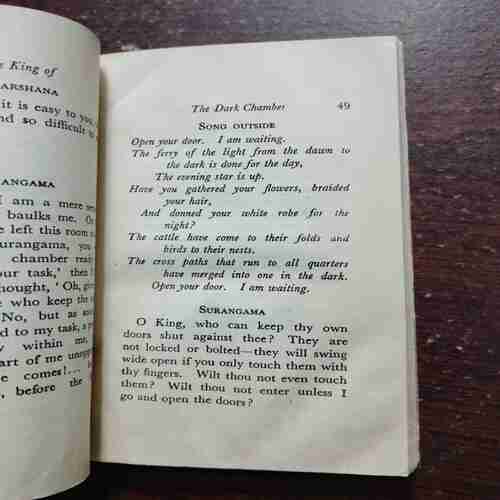 e King of
ARSHANA
it is easy to you,
nd so difficult to
ANGAMA
I am a mere se
baulks me. O
e left this room
urangama, you
chamber rea
our task,' the
hought, 'Oh, giv
e who keep the
No, but as soo
d to my task, a p
y within me,
art of me unopp
e comes!...
, before the
The Dark Chamber 49
SONG OUTSIDE
Open your door. I am waiting.
The ferry of the light from the dawn to
the dark is done for the day,
The evening star is up.
Have you gathered your flowers, braided
your hair,
And donned your white robe for the
night?
The cattle have come to their folds and
birds to their nests,
The cross paths that run to all quarters
have merged into one in the dark.
Open your door. I am waiting.
SURANGAMA
O King, who can keep thy own
doors shut against thee? They are
not locked or bolted—they will swing
wide open if you only touch them with
thy fingers. Wilt thou not even touch
them? Wilt thou not enter unless I
go and open the doors?